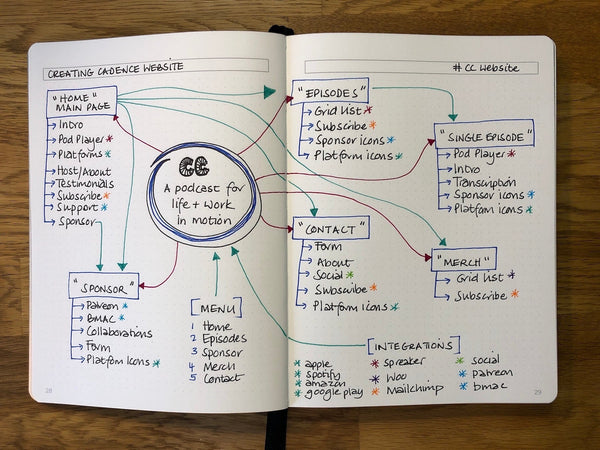 CREATING CADENCE WEBSITE
"HOME"
MAIN PAGE
Intro
Pod Player *
Platforms *
Host/About
Testimonials
Subscribe *
Support *
Sponsor
CC
A podcast for
life + work
in motion
"SPONSOR"
Patreon *
BMAC *
Collaborations
Form
Platform Icons *
[MENU]
1 Home
2 Episodes
3 Sponsor
4 Merch
5 Contact
28
# CC Website
"EPISODES"
Grid List *
Subscribe *
Sponsor icons *
Platform icons *
"SINGLE EPISODE"
Pod Player *
Intro
Transcription
Sponsor icons *
Platform icons *
"CONTACT"
Form
About
Social *
Subscribe *
Platform Icons *
"MERCH"
Grid List *
Subscribe *
[INTEGRATIONS]
* apple
* spotify
* amazon
* google play
* Spreaker
* Woo
* Mailchimp
* social
* patreon
* bmac
29